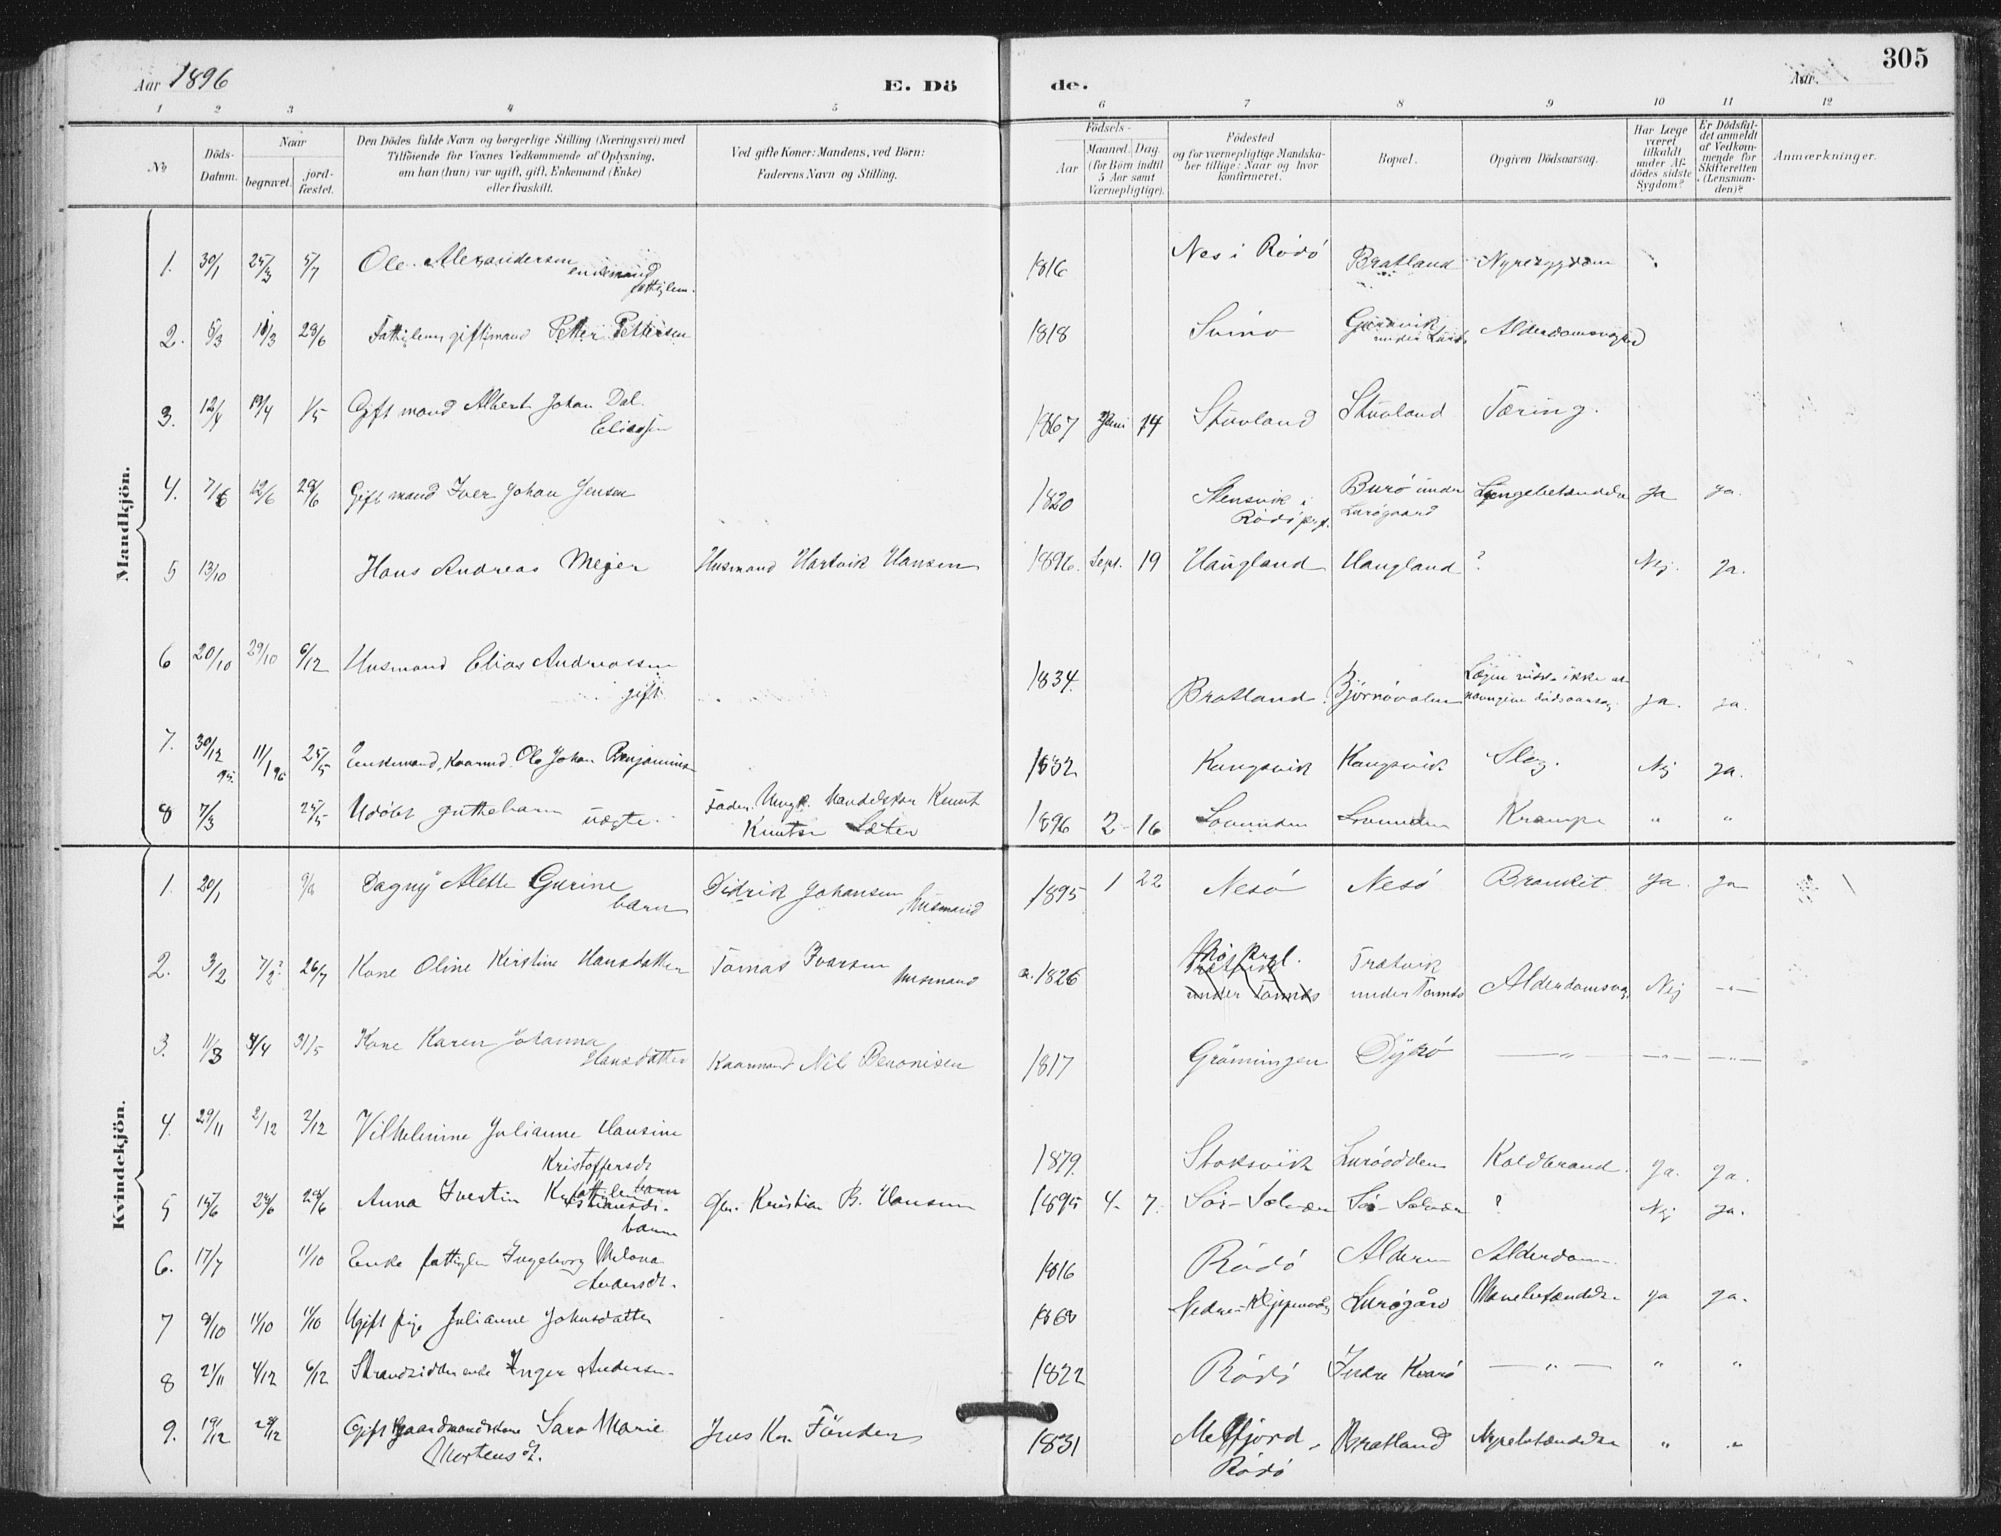 Aar 1896
E. Dö
de.
Aar.
305
1 2 3 4 5 6 7 8 9 10 11 12
No
Döds-Datum.
Naar
begravet.
jordfæstet.
Den Dödes fulde Navn og borgerlige Stilling (Næringsvei) med
Tilföiende for Voxnes Vedkommende af Oplysning,
om han (hun) var ugift, gift, Enkemand (Enke)
eller fraskilt.
Ved gifte Koner: Mandens, ved Börn:
Faderens Navn og Stilling.
Födsels-
Aar
Maaned. Dag.
(for Börn indtil
5 Aar samt
Værnepligtige).
Födested
og for værnepligtige Mandska-
ber tillige: Naar og hvor
konfirmeret.
Bopæl.
Opgiven Dödsaarsag.
Har Læge
været
tilkaldt
under Af-
dödes sidste
Sygdom?
Er Dödsfal-
det anmeldt
af Vedkom-
mende for
Skifteretten
(Lensman-
den)?
Anmærkninger.
Mandkjön.
1. 30/1 25/3 5/7 Ole Alexandersen enkemand fattiglem. 1816 Nes i Rödö Bratland Nyresygdom
2. 5/3 11/3 28/6 Fattiglem giftmand Petter Pettersen 1818 Svinö Alderdomsvaghed
3. 12/4 19/4 1/5 Gift mand Albert Johan Dal. Eliassen 1867 Juni 14 Stuvland Stuvland Tæring.
4. 7/6 12/6 28/6 Gift mand Iver Johan Jensen 1820 Stensvik i Rödö prgl. Burö under Lurögaard Lungebetændelse ja ja.
5 13/10 Hans Andreas Mejer Husmand Hartvik Hansen 1896. Sept. 19 Haugland Haugland ? Nej. ja.
6 20/10 29/10 6/12 Husmand Elias Andreassen gift 1834. Bratland. Lægen vidste ikke at navngive dödsaarsag. ja. ja.
7. 30/12 95. 11/1 96 25/5 Enkemand, Kaarmd. Ole Johan Benjaminsen 1832 Kangsvik Kangsvik Slag. Nej ja.
8 7/3 25/5 Udöbt guttebarn uægte. Fader. Ungk. Handelskar Knut Knutsen Sæter 1896 2 - 16 Lovunden Lovunden Krampe " "
Kvindekjön.
1. 20/1 Dagny Alette Gurine barn Didrik Johansen Husmand 1895 1 22 Nesö Nesö Bronkit ja. ja
2. 3/2 7/2? 26/7 Kone Oline Kirstine Hansdatter Tomas Ivarsen Husmand a. 1826 under Tonnes Trætvik under Tonnes Alderdomsvag. Nej -"-
3. 11/3 4/4 31/5 Kone Karen Johanna Hansdatter Kaarmand Nils Benonisen 1817 Grönningen Dyrö -"- -"- -"-
4. 29/11 2/12 2/12 Vilhelmine Julianne Hansine Kristoffersdr fattiglem barn 1879. Stoksvik Luröodden Koldbrand. ja. ja.
5 15/6 28/6 28/6 Anna Ivertin Kristiansdr. barn Kristian B. Hansen 1895 4. 7. Sör-Solvær Sör-Solvær ? Nej ja.
6. 17/7 11/10 Enke fattiglem Ingeborg Melona Andersdr. 1816 Rödö Alderen Alderdom.
7 9/10 11/10 11/10 Ugift pige Julianne Johnsdatter 1868 Nedre-Klippenvåg Lurögård Mavebetændelse ja ja.
8 21/11 4/12 6/12 Strandsidderenke Inger Andersen 1822 Rödö Indre Kvarö -"- " "
9. 19/12 28/12 Gift gaardmandskone Sara Marie Mortensdt. Jens Kr. Fönden 1831 Melfjord, Rödö Bratland Nyrebetændelse " "